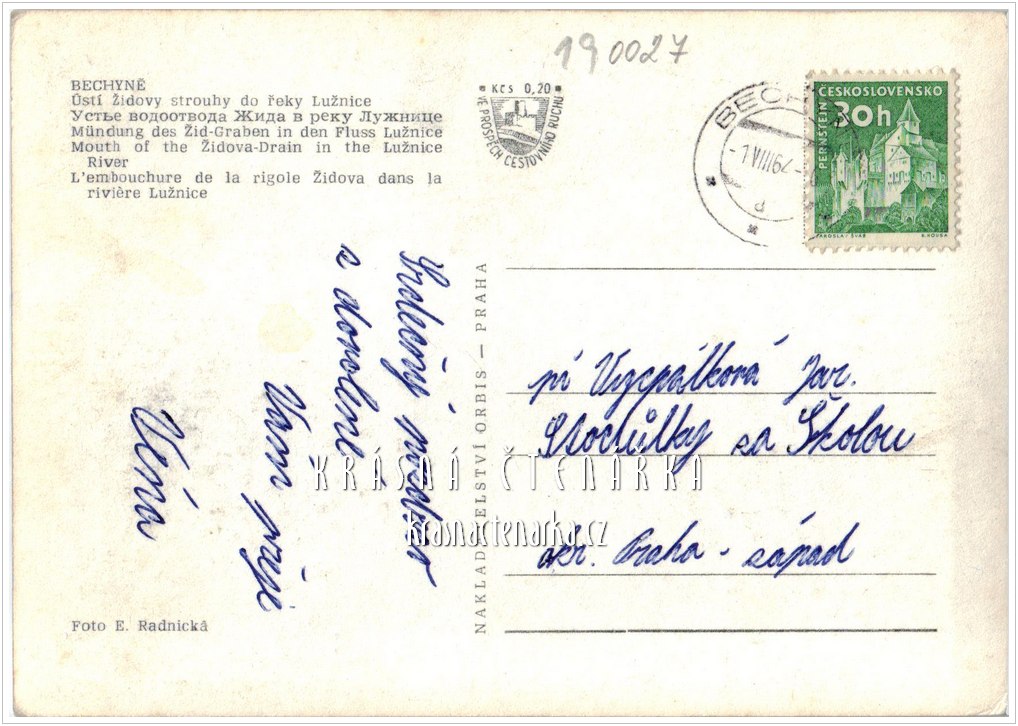 19 0027
BECHYNĚ
Ústí Židovy strouhy do řeky Lužnice
Устье водоотвода Жида в реку Лужнице
Mündung des Žid-Graben in den Fluss Lužnice
Mouth of the Židova-Drain in the Lužnice
River
L'embouchure de la rigole Židova dans la
rivière Lužnice
Kčs 0,20
VE PROSPĚCH CESTOVNÍHO RUCHU
BECH
-1.VIII.62-
d
ČESKOSLOVENSKO
30h
PERNŠTEJN
JAROSLAV ŠVÁB
Srdečný pozdrav
z dovolené
Vám přeje
Věra
NAKLADATELSTVÍ ORBIS — PRAHA
pí Vycpálková Jar.
Stochůlky za Školou
okr. Praha - západ
KRÁSNÁ ČTENÁŘKA
krasnactenarka.cz
Foto E. Radnická